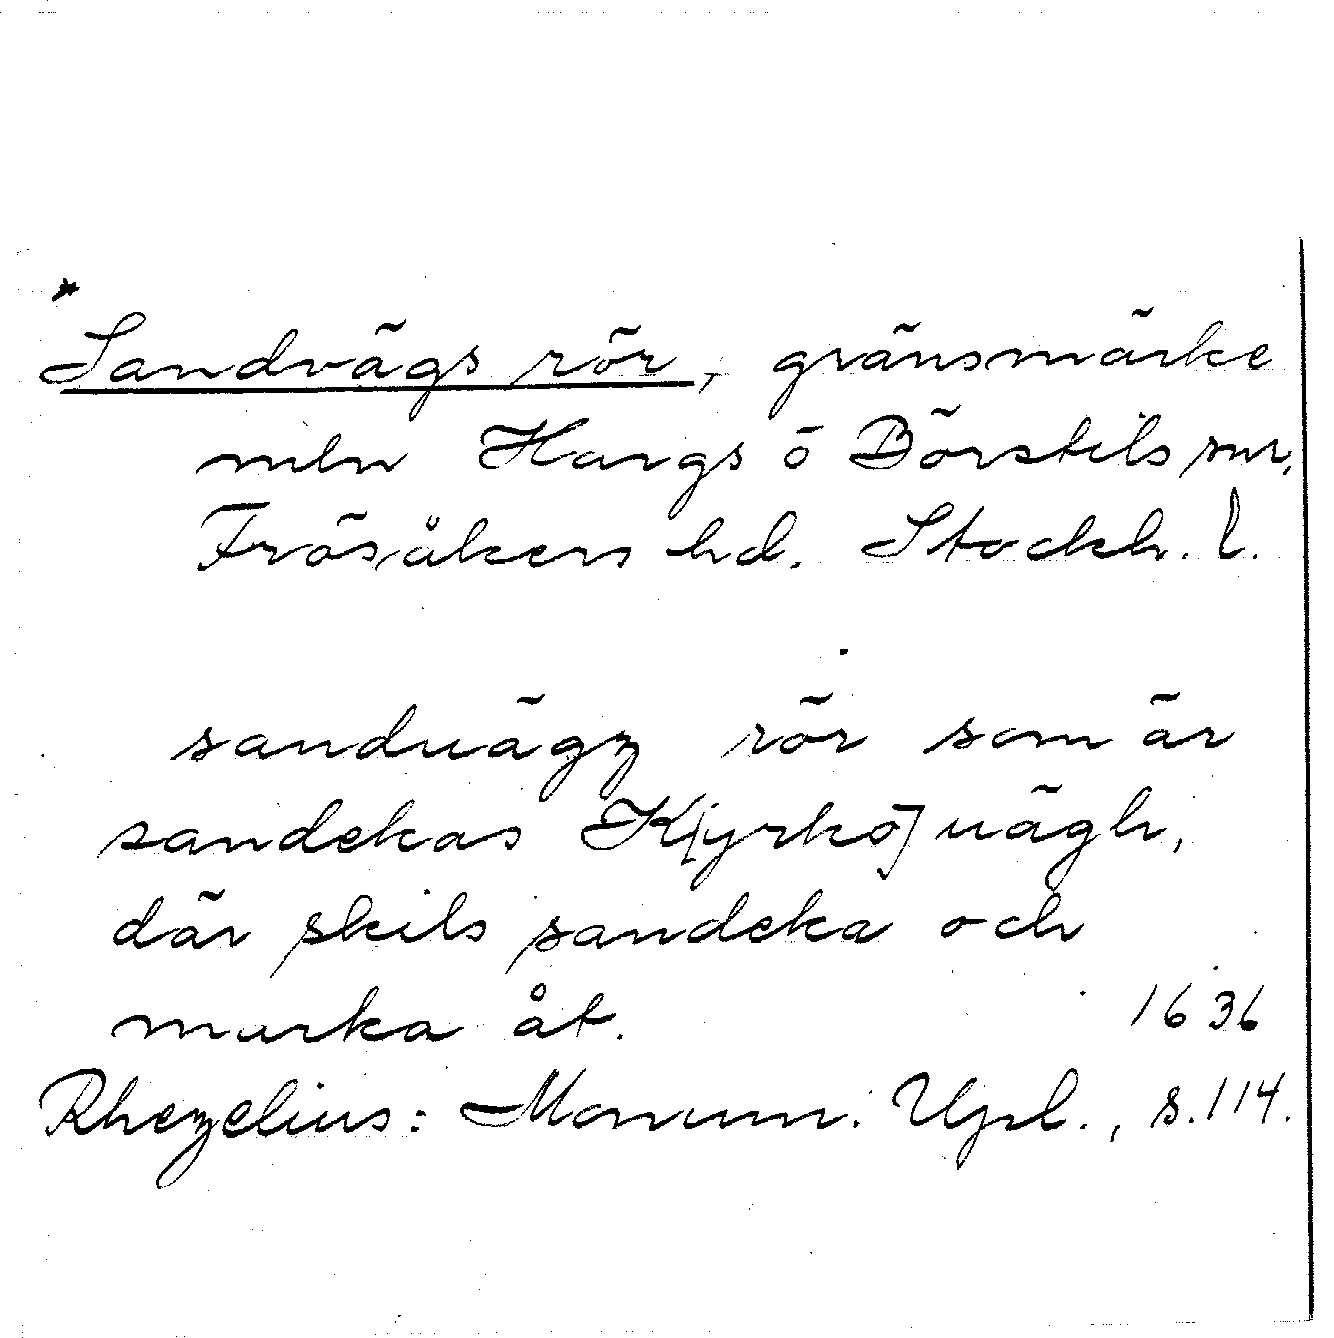 *
Sandvägs rör, gränsmärke
mln Hargs o Börstils snr,
Frösåkers hd. Stockh. l.
sanduägz rör som är
sandekas K[yrko]uägh,
där skils sandeka och
marka åt. 1636
Rhezelius: Monum. Upl., s. 114.